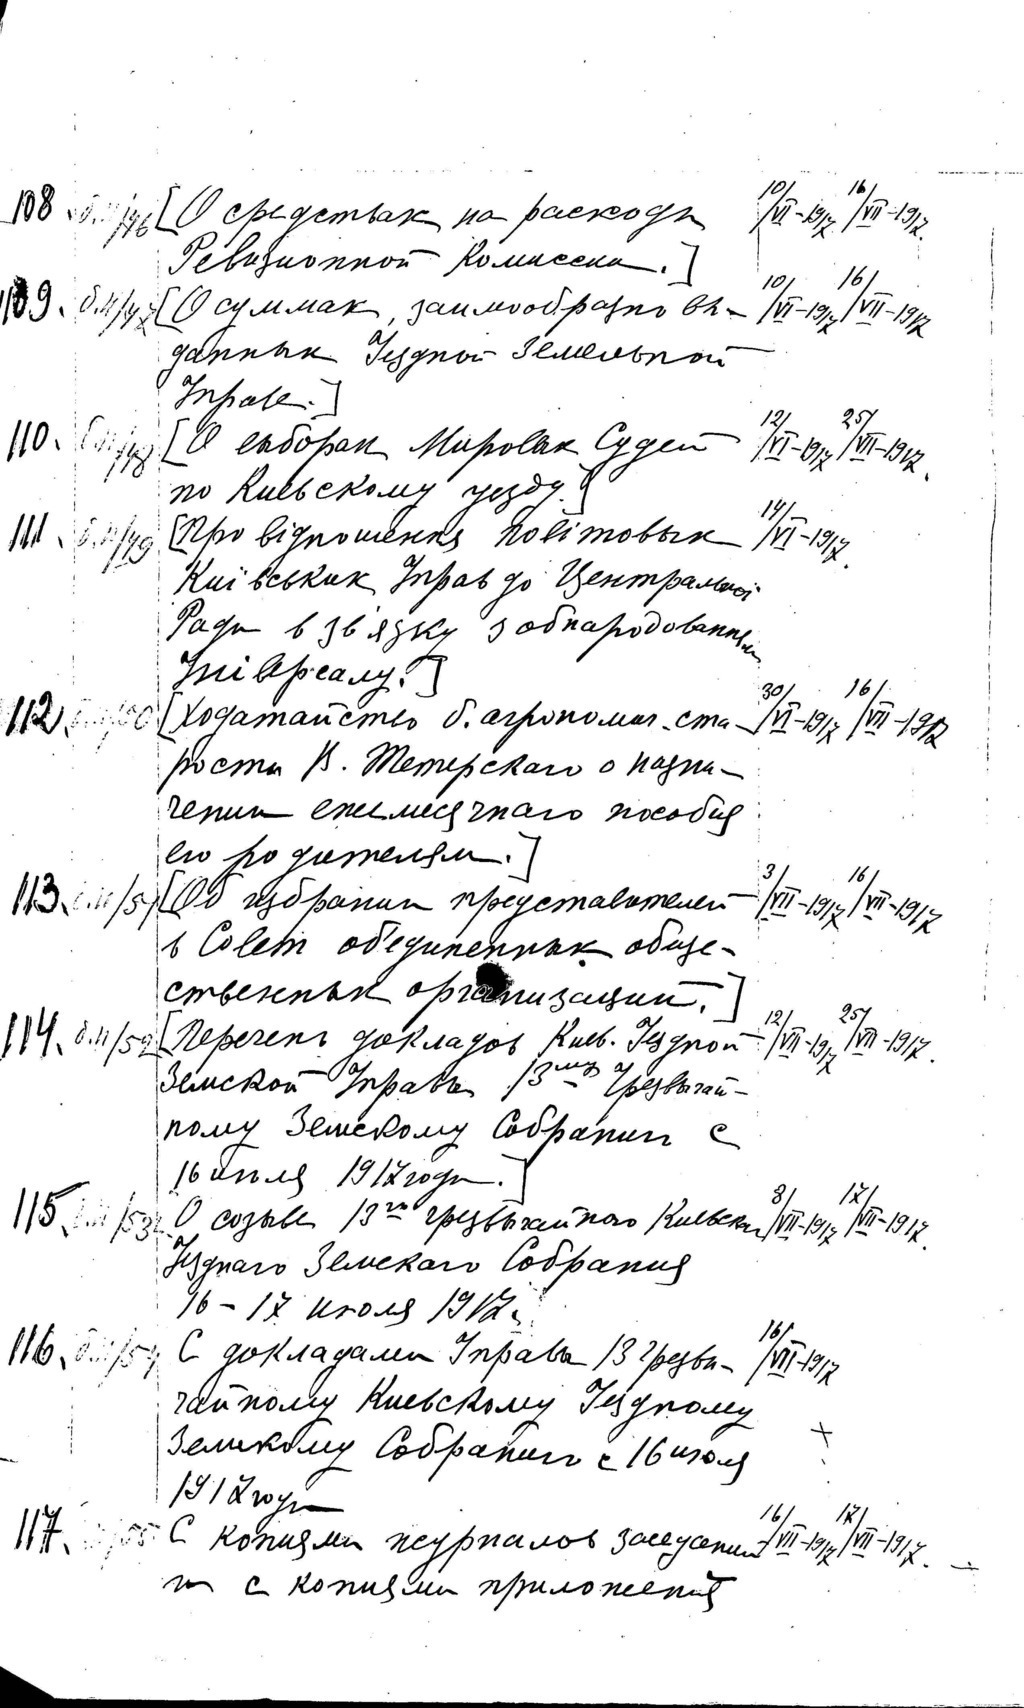 108 б.н/46 [О средствах на расходы 10/VI-1917 16/VII-1917.
Ревизионной Комиссии.]
109. б.н/47 [О суммах, заимообразно вы- 10/VI-1917 16/VII-1917
данных Уездной Земельной
Управе.]
110. б.н/48 [О выборах Мировых Судей 12/VI-1917 25/VII-1917.
по Киевскому уезду.]
111. б.н/49 [Про відношення повітовых 14/VI-1917.
Київських Управ до Центральної
Ради в зв'язку з обнародованням
Універсалу.]
112. б.н/50 [Ходатайство б. агрономич. ста- 30/VI-1917 16/VII-1917
росты В. Тетерскаго о назна-
чении ежемесячнаго пособия
его родителям.]
113. б.н/51 [Об избрании представителей 3/VII-1917 16/VII-1917
в Совет объединенных обще-
ственных организаций.]
114. б.н/52 [Перечень докладов Киев. Уездной 12/VII-1917 25/VII-1917.
Земской Управы 13му Чрезвычай-
ному Земскому Собранию с
16 июля 1917 года.]
115. б.н/53 О созыве 13го чрезвычайного Киевск. 8/VII-1917 17/VII-1917.
Уезднаго Земскаго Собрания
16-17 июля 1917.
116. б.н/54 С докладами Управы 13 Чрезвы- 16/VII-1917
чайному Киевскому Уездному
Земскому Собранию с 16 июля
1917 года
117. б.н/55 С копиями журналов заседаний 16/VII-1917 17/VII-1917.
и с копиями приложений